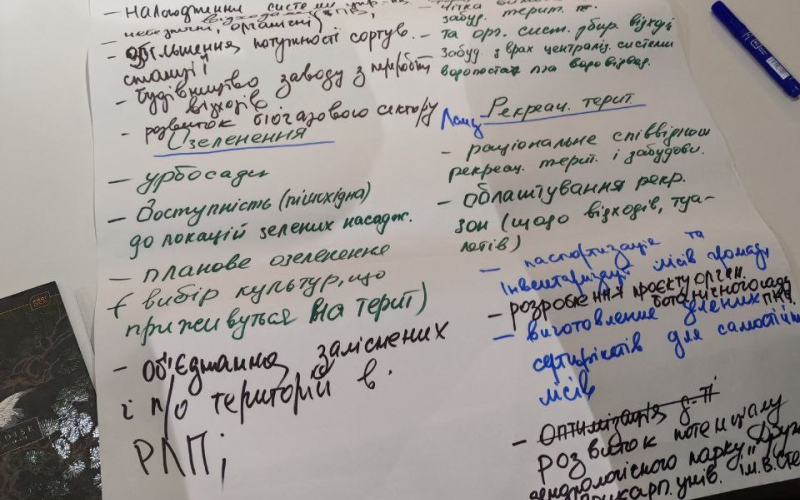 - налагодження системи
органічні),
- збільшення потужності сортув.
станції
- будівництво заводу з переробки
відходів
- розвиток біогазового сектору
Озеленення
- урбосади
- Доступність (пішохідна)
до локацій зелених насадж.
- планове озеленення
( вибір культур, що
приживуться на терит)
- об'єднання заліснених
і п/о територій в
РЛП;
забуд. терит.
- та орг. сист. збир. відході
забуд. з врах. централіз. системи
водопостач та водовідвед.
Рекреац. терит.
- раціональне співвіднош
рекреац. терит. і забудови.
- облаштування рекр.
зон (щодо відходів, туа-
летів)
- паспортизація та
інвентаризації лісів громади
- розроблення проєкту орган.
ботанічного саду
- виготовлення зелених
сертифікатів для самостійних
лісів
- Оптимізація
розвиток потенціалу
дендрологічного парку "Дружба"
Прикарп. унів. ім. В. Сте